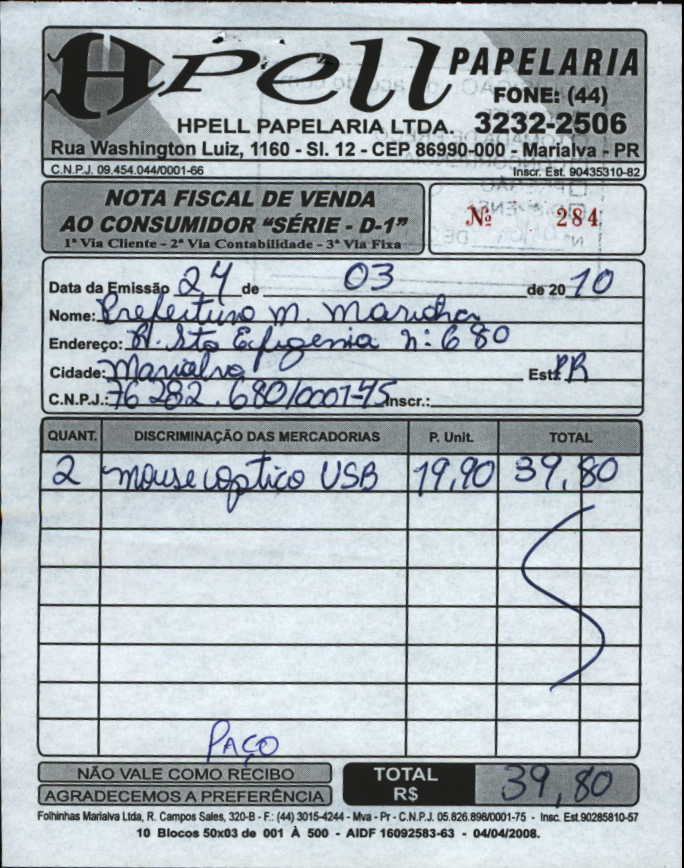 Hpell PAPELARIA
FONE: (44)
HPELL PAPELARIA LTDA. 3232-2506
Rua Washington Luiz, 1160 - Sl. 12 - CEP 86990-000 - Marialva - PR
C.N.P.J. 09.454.044/0001-66 Inscr. Est. 90435310-82
NOTA FISCAL DE VENDA
AO CONSUMIDOR "SÉRIE - D-1"
1ª Via Cliente - 2ª Via Contabilidade - 3ª Via Fixa
Nº 284
Data da Emissão 24 de 03 de 2010
Nome: Prefeitura M. Marialva
Endereço: R. Sta Efigenia nº: 680
Cidade: Marialva Est: PR
C.N.P.J.: 76 282.680/0001-45 Inscr.:
QUANT. DISCRIMINAÇÃO DAS MERCADORIAS P. Unit. TOTAL
2 mouse optico USB 19,90 39,80
PAÇO
NÃO VALE COMO RECIBO
AGRADECEMOS A PREFERÊNCIA
TOTAL R$ 39,80
Folhinhas Marialva Ltda, R. Campos Sales, 320-B - F.: (44) 3015-4244 - Mva - Pr - C.N.P.J. 05.826.898/0001-75 - Insc. Est.90285810-57
10 Blocos 50x03 de 001 À 500 - AIDF 16092583-63 - 04/04/2008.